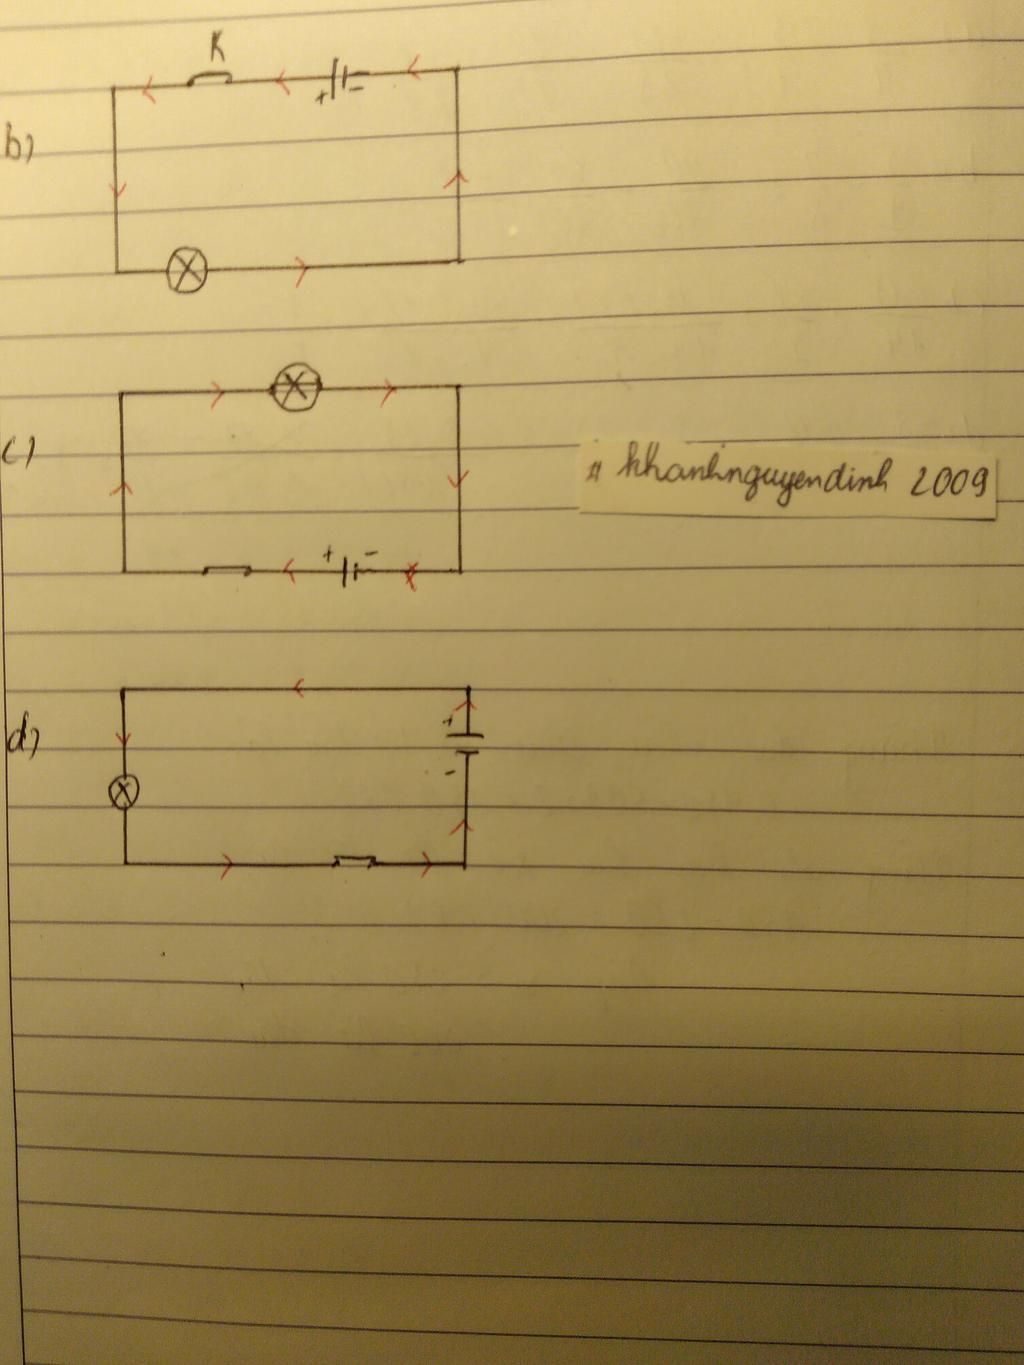 K
+ -
b)
c)
# khanhnguyendinh 2009
+ -
d)
+
-